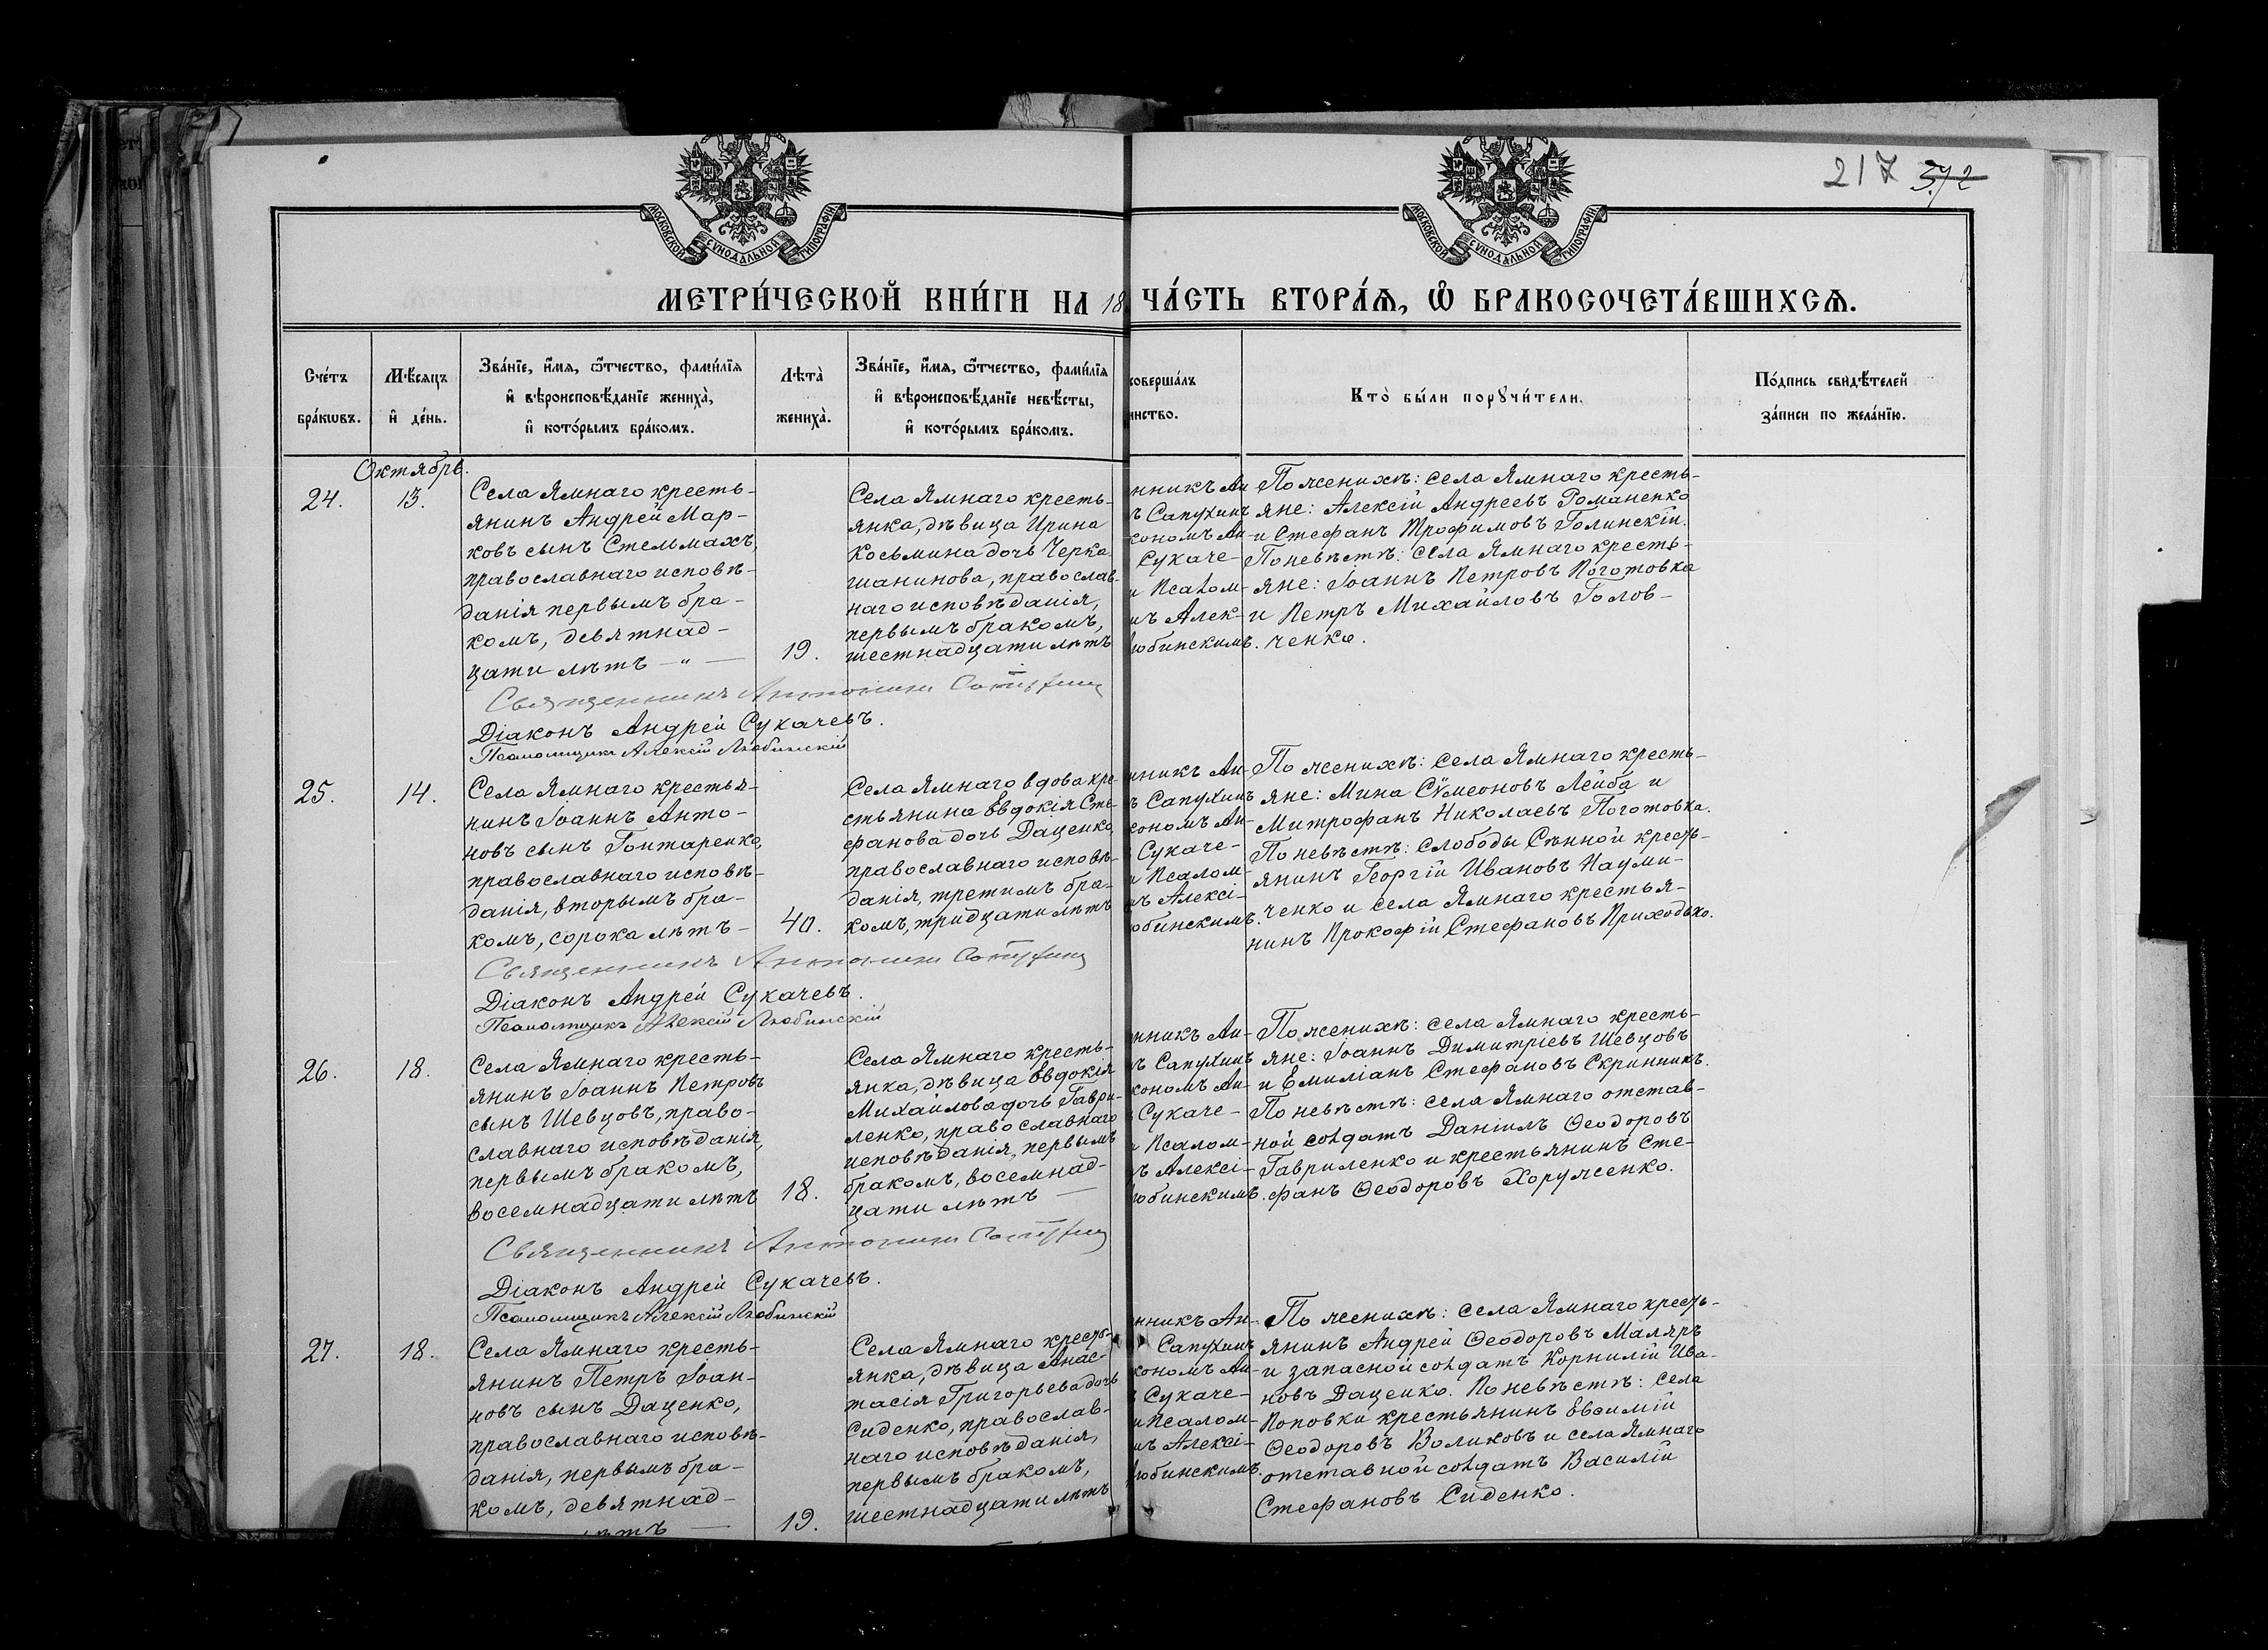 217 372
МОСКОВСКОЙ СѴНОДАЛЬНОЙ ТИПОГРАФІИ
МОСКОВСКОЙ СѴНОДАЛЬНОЙ ТИПОГРАФІИ
МЕТРИ́ЧЕСКОЙ КНИ́ГИ НА 18
ЧА́СТЬ ВТОРА́Ѧ, Ѽ БРАКОСОЧЕТА́ВШИХСѦ.
Сче́тъ
бра́кѡвъ.
Мѣ́сяцъ
и҆ де́нь.
Зва́нїе, и҆́мя, ѻ҆́тчество, фами́лїя
и҆ вѣроисповѣ́данїе жениха̀,
и҆ кото́рымъ бра́комъ.
Лѣта̀
жениха̀.
Зва́нїе, и҆́мя, ѻ҆́тчество, фами́лїя
и҆ вѣроисповѣ́данїе невѣ́сты,
и҆ кото́рымъ бра́комъ.
соверша́лъ
инство.
Кто̀ бы́ли порꙋчи́тели.
По́дпись свидѣ́телей
за́писи по жела́нїю.
Октябрь.
24.
13.
Села Ямнаго кресть-
янинъ Андрей Мар-
ковъ сынъ Стельмахъ,
православнаго исповѣ-
данія первымъ бра-
комъ, девятнад-
цати лѣтъ — „ —
19.
Села Ямнаго кресть-
янка, дѣвица Ирина
Косьмина дочь Черка-
шанинова, православ-
наго исповѣданія,
первымъ бракомъ,
шестнадцати лѣтъ
нникъ Ан-
ъ Сапухинъ
кономъ Ан-
Сукаче-
и Псалом-
мъ Алек-
юбинскимъ.
По женихѣ: села Ямнаго кресть-
яне: Алексій Андреевъ Романенко
и Стефанъ Трофимовъ Голинскій.
По невѣстѣ: села Ямнаго кресть-
яне: Іоаннъ Петровъ Поготовка
и Петръ Михайловъ Голов-
ченко.
Священникъ Антоній Сапухин
Діаконъ Андрей Сукачевъ.
Псаломщикъ Алексій Любинскій
25.
14.
Села Ямнаго крестья-
нинъ Іоаннъ Анто-
новъ сынъ Гонтаренко,
православнаго исповѣ-
данія, вторымъ бра-
комъ, сорока лѣтъ —
40.
Села Ямнаго вдова кре-
стьянина Евдокія Сте-
фанова дочь Даценко,
православнаго исповѣ-
данія, третимъ бра-
комъ, тридцати лѣтъ
нникъ Ан-
ъ Сапухинъ
кономъ Ан-
Сукаче-
и Псалом-
мъ Алексі-
юбинскимъ.
По женихѣ: села Ямнаго кресть-
яне: Мина Сѵмеоновъ Лейба и
Митрофанъ Николаевъ Поготовка.
По невѣстѣ: слободы Сѣнной кресть-
янинъ Георгій Ивановъ Науми-
ченко и села Ямнаго крестья-
нинъ Прокофій Стефановъ Приходько.
Священникъ Антоній Сапухин
Діаконъ Андрей Сукачевъ.
Псаломщикъ Алексій Любинскій
26.
18.
Села Ямнаго кресть-
янинъ Іоаннъ Петровъ
сынъ Шевцовъ, право-
славнаго исповѣданія,
первымъ бракомъ,
восемнадцати лѣтъ
18.
Села Ямнаго кресть-
янка, дѣвица Евдокія
Михайлова дочь Гаври-
ленко, православнаго
исповѣданія, первымъ
бракомъ, восемнад-
цати лѣтъ —
нникъ Ан-
ъ Сапухинъ
кономъ Ан-
Сукаче-
и Псалом-
мъ Алексі-
юбинскимъ.
По женихѣ: села Ямнаго кресть-
яне: Іоаннъ Димитріевъ Шевцовъ
и Емиліанъ Стефановъ Скринникъ.
По невѣстѣ: села Ямнаго отстав-
ной солдатъ Даніилъ Ѳеодоровъ
Гавриленко и крестьянинъ Сте-
фанъ Ѳеодоровъ Хоруженко.
Священникъ Антоній Сапухин
Діаконъ Андрей Сукачевъ.
Псаломщикъ Алексій Любинскій
27.
18.
Села Ямнаго кресть-
янинъ Петръ Іоан-
новъ сынъ Даценко,
православнаго исповѣ-
данія, первымъ бра-
комъ, девятнад-
лѣтъ —
19.
Села Ямнаго кресть-
янка, дѣвица Анас-
тасія Григорьева дочь
Сиденко, православ-
наго исповѣданія,
первымъ бракомъ,
шестнадцати лѣтъ
нникъ Ан-
Сапухинъ
кономъ Ан-
Сукаче-
и Псалом-
мъ Алексі-
юбинскимъ.
По женихѣ: села Ямнаго кресть-
янинъ Андрей Ѳеодоровъ Маляръ
и запасной солдатъ Корнилій Ива-
новъ Даценко. По невѣстѣ: села
Поповки крестьянинъ Евѳимій
Ѳеодоровъ Воликовъ и села Ямнаго
отставной солдатъ Василій
Стефановъ Сиденко.